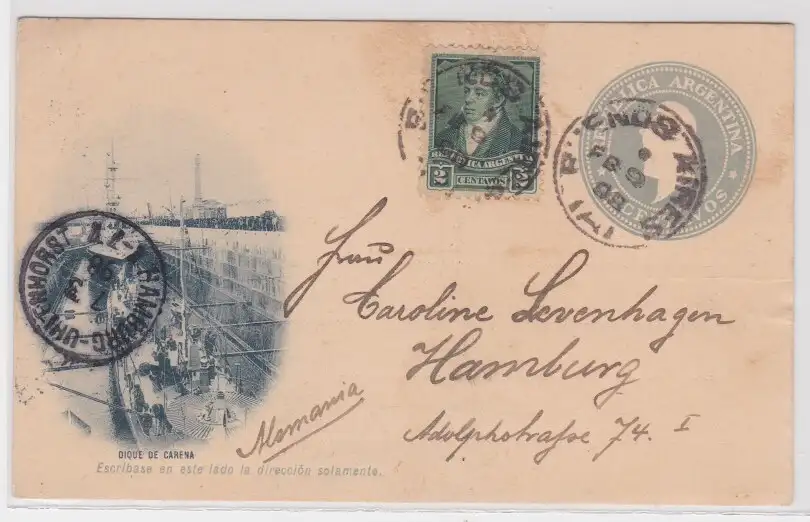 REPUBLICA ARGENTINA
CENTAVOS
REPUBLICA ARGENTINA
2 CENTAVOS 2
BUENOS AIRES
HAMBURG-UHLENHORST
Frau
Caroline Levenhagen
Hamburg
Adolphstraße 74. I
Alemania
DIQUE DE CARENA
Escríbase en este lado la dirección solamente.